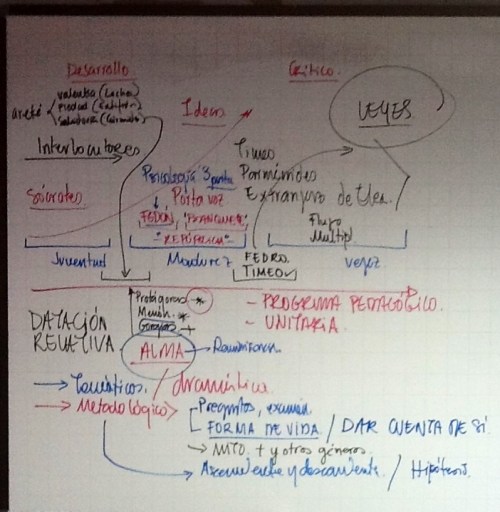 Desarrollo
Crítico.
valentía (Laches)
areté
piedad (Eutifrón)
Ideas
LEYES
Interlocutores
Timeo
Psicología 3 parta
Parménides
Sócrates
Porta voz
Extranjero de Elea.
FEDÓN, "BANQUETE"
Flujo
"REPÚBLICA"
Multipl
Juventud
Madurez
FEDRO.
TIMEO
vejez
Protágoras *
- PROGRAMA PEDAGÓGICO.
Menón. *
- UNITARIA.
DATACIÓN
RELATIVA
Gorgias +
ALMA
→ Temáticos. / dramática
→ Metodológico
- Preguntas, examen
- FORMA DE VIDA / DAR CUENTA DE SÍ
→ MITO + y otros géneros.
→ Ascendente y descendente. / Hipótesis.